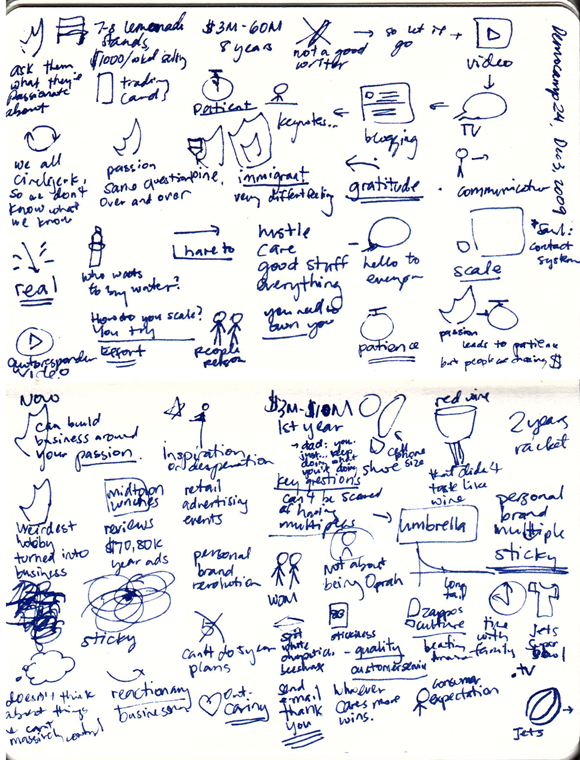 7-8 lemonade
stands
$1000/wknd selling
$3M-60M
8 years
not a good
writer
so let it
go
video
Democamp 24, Dec 3, 2009
ask them
what they're
passionate
about
trading
cards
patient
keynotes...
blogging
TV
we all
so we don't
know what
we know
passion
same question
over and over
immigrant
very different feeling
gratitude.
communicator
real
who wants
to buy water?
I hate to
hustle
care
good stuff
everything
you need to
own you
hello to
everyone
scale
*Saul:
contact
system
autoresponder
video
How do you scale?
You try
Effort
people
person
patience
passion
leads to patience
but people are chasing $
Now
can build
business around
your passion.
inspiration
or desperation
$3M-$10M
1st year
→ dad: you
just... keep
doing what
you're doing
cell
phone
shoe size
red wine
that didn't
taste like
wine
2 years
racket
weirdest
hobby
turned into
business
midtown
lunches
reviews
$70,80k
year ads
retail
advertising
events
key questions
can't be scared
of having
multiples
umbrella
personal
brand
multiple
sticky
personal
brand
revolution
WOM
Not about
being Oprah
long
tail
sticky
can't do 5 year
plans
spit
white
stickiness
- quality
customer service
Zappos
culture
time
with
family
Jets
Super
Bowl
.tv
doesn't think
about things
he can't
massively control
reactionary
businessman
Out.
Caring
send
email
thank
you
Whoever
cares more
wins.
consumer
expectation
Jets